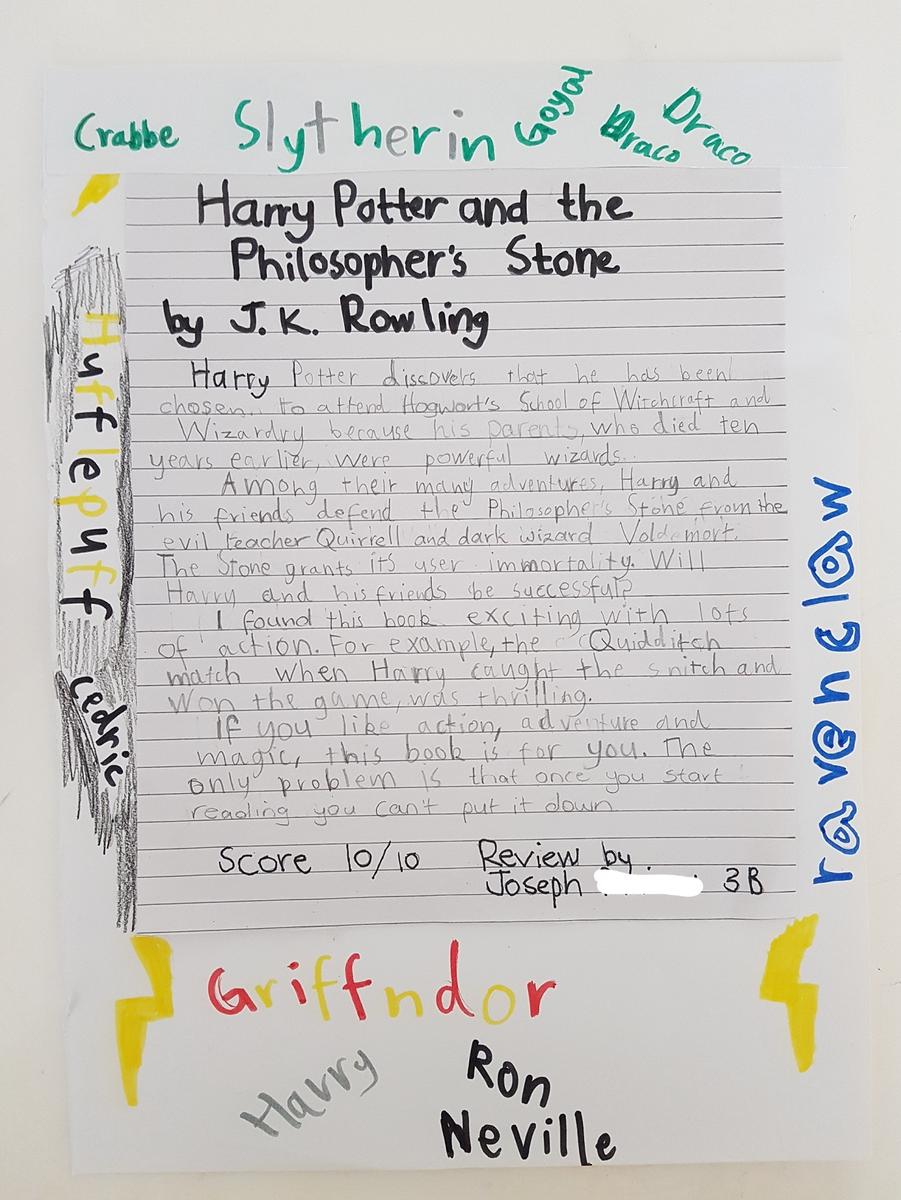 Crabbe Slytherin Goyal Draco Draco
Harry Potter and the
Philosopher's Stone
by J.K. Rowling
Harry Potter discovers that he has been
chosen to attend Hogwort's School of Witchcraft and
Wizardry because his parents, who died ten
years earlier, were powerful wizards.
Among their many adventures, Harry and
his friends defend the Philosopher's Stone from the
evil teacher Quirrell and dark wizard Voldemort.
The Stone grants its user immortality. Will
Harry and his friends be successful?
I found this book exciting with lots
of action. For example, the Quidditch
match when Harry caught the snitch and
won the game, was thrilling.
If you like action, adventure and
magic, this book is for you. The
only problem is that once you start
reading you can't put it down
Score 10/10 Review by
Joseph 3B
Hufflepuff cedric
ravenclaw
Griffndor
Harry Ron
Neville